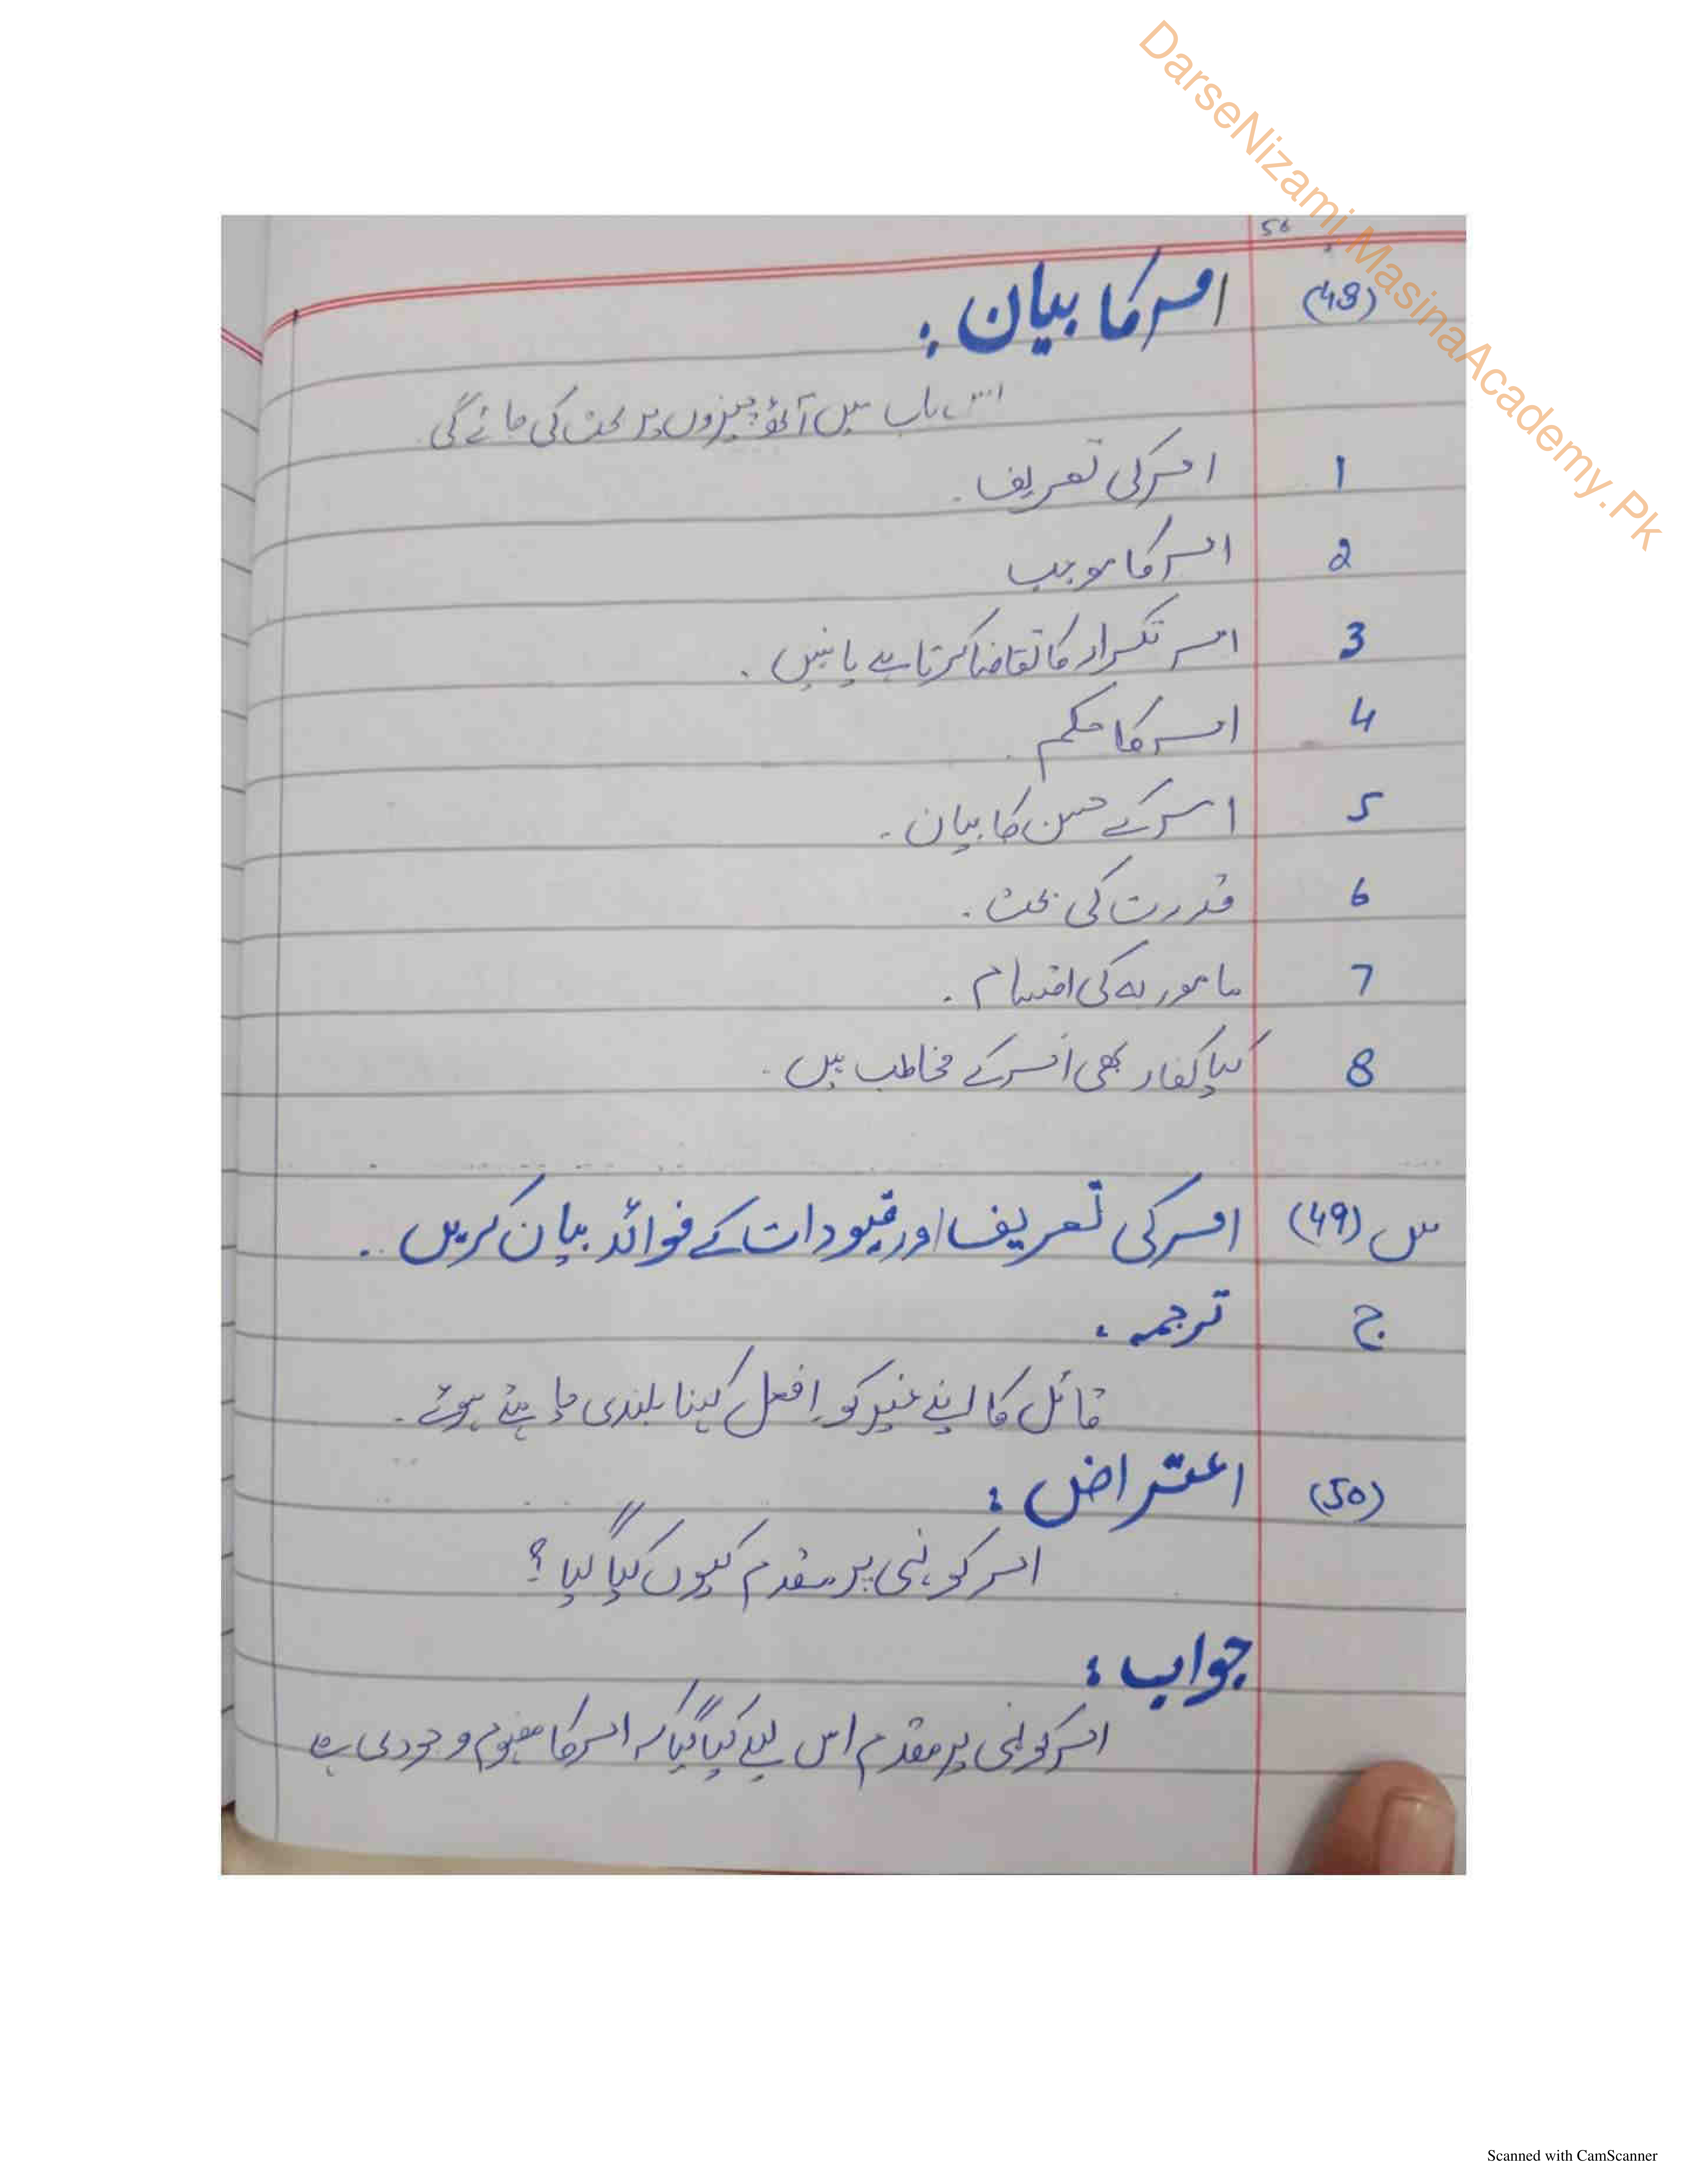 DarseNizami.MasinaAcademy.Pk
56
(48) امر کا بیان :
اس باب میں آٹھ چیزوں پر بحث کی جائے گی
1 امر کی تعریف ۔
2 امر کا موجب
3 امر تکرار کا تقاضا کرتا ہے یا نہیں ۔
4 امر کا حکم ۔
5 امر کے حسن کا بیان ۔
6 قدرت کی بحث ۔
7 مامور بہ کی اقسام ۔
8 کیا کفار بھی امر کے مخاطب ہیں ۔
س (49) امر کی تعریف اور قیودات کے فوائد بیان کریں ۔
ج ترجمہ :
قائل کا اپنے غیر کو اِفعل کہنا بلندی چاہتے ہوئے ۔
(50) اعتراض :
امر کو نہی پر مقدم کیوں کیا گیا ؟
جواب :
امر کو نہی پر مقدم اس لیے کیا گیا کہ امر کا مفہوم وجودی ہے
Scanned with CamScanner